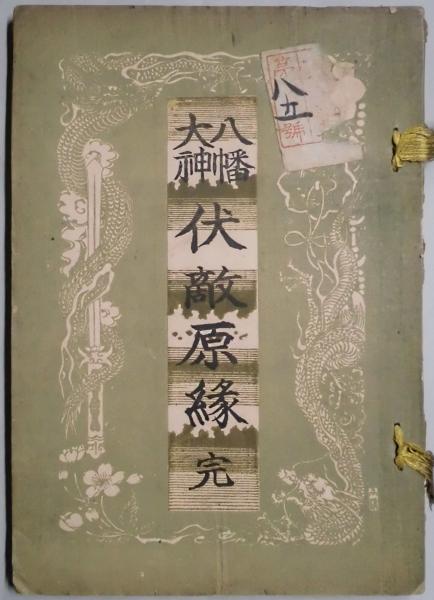 八幡
大神
伏敵原縁
完
第
八五
號